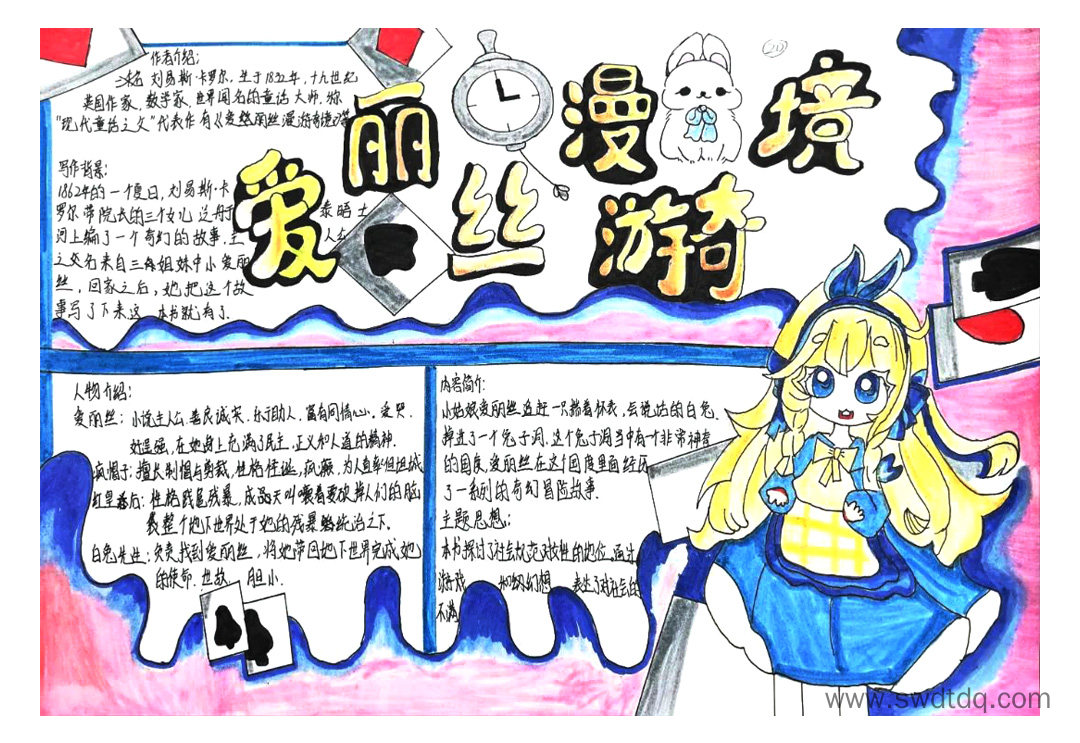 爱丽丝漫游奇境
作者介绍:
刘易斯·卡罗尔,生于1832年,十九世纪
英国作家、数学家、世界闻名的童话大师,称
"现代童话之父"代表作有《爱丽丝漫游奇境》等
写作背景:
1862年的一个夏日,刘易斯·卡
罗尔带院长的三个女儿泛舟于 泰晤士
河上编了一个奇幻的故事,主 人公
之名来自三姐妹中小爱丽
丝,回家之后,她把这个故
事写了下来这一本书就有了.
人物介绍:
爱丽丝:小说主人公,善良诚实、乐于助人、富有同情心,爱哭、
好逞强,在她身上充满了民主、正义和人道的精神.
疯帽子:擅长制帽与剪裁,性格怪诞,疯癫,为人直率但坦诚
红皇后:性格残暴,成天叫嚷着要砍掉人们的脑
袋整个地下世界处于她的残暴统治之下.
白兔先生:负责找到爱丽丝,将她带回地下世界完成她
的使命. 胆小.
内容简介:
小姑娘爱丽丝追赶一只揣着怀表、会说话的白兔
掉进了一个兔子洞,这个兔子洞当中有个非常神奇
的国度,爱丽丝在这个国度里面经历
了一系列的奇幻冒险故事.
主题思想:
本书探讨了社会 对女性的地位,通过
游戏 和 幻想 表达了对社会的
不满
www.swdtdq.com